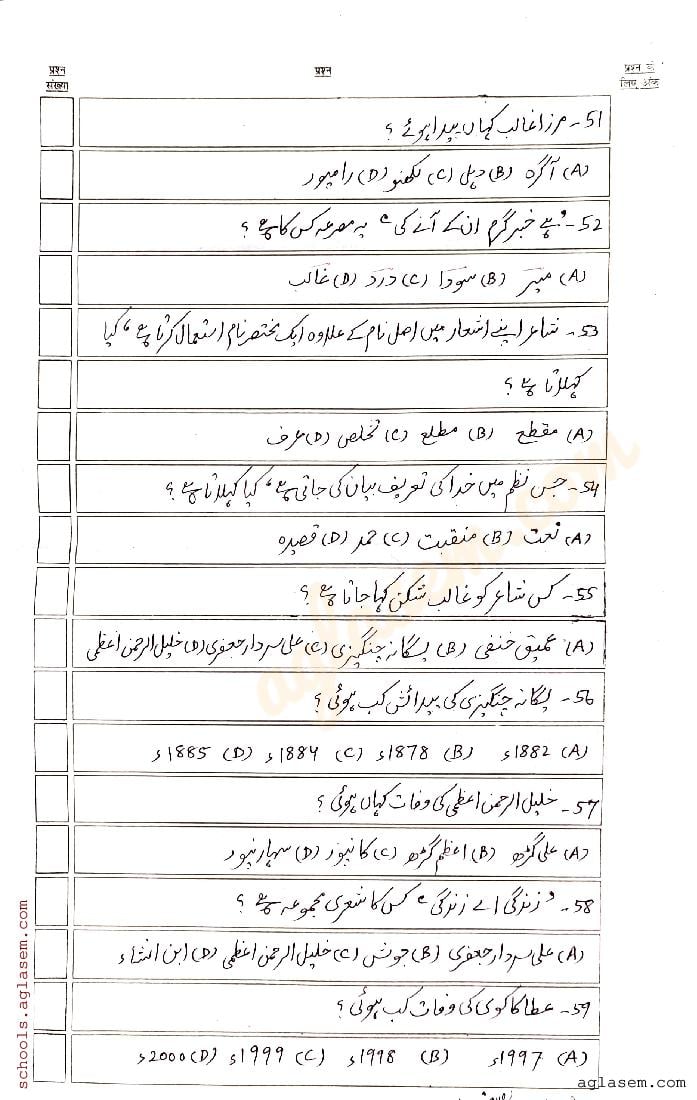 प्रश्न संख्या
प्रश्न
प्रश्न के लिए अंक
51- مرزا غالب کہاں پیدا ہوئے ؟
(A) آگرہ (B) دہلی (C) لکھنو (D) رامپور
52- 'ہے خبر گرم ان کے آنے کی' یہ مصرعہ کس کا ہے ؟
(A) میر (B) سودا (C) درد (D) غالب
53- شاعر اپنے اشعار میں اصل نام کے علاوہ ایک مختصر نام استعمال کرتا ہے، کیا
کہلاتا ہے ؟
(A) مقطع (B) مطلع (C) تخلص (D) عرف
54- جس نظم میں خدا کی تعریف بیان کی جاتی ہے، کیا کہلاتا ہے ؟
(A) نعت (B) منقبت (C) حمد (D) قصیدہ
55- کس شاعر کو غالب شکن کہا جاتا ہے ؟
(A) عمیق حنفی (B) یگانہ چنگیزی (C) علی سردار جعفری (D) خلیل الرحمن اعظمی
56- یگانہ چنگیزی کی پیدائش کب ہوئی ؟
(A) 1882ء (B) 1878ء (C) 1884ء (D) 1885ء
57- خلیل الرحمن اعظمی کی وفات کہاں ہوئی ؟
(A) علی گڑھ (B) اعظم گڑھ (C) کانپور (D) سہارنپور
58- 'زندگی اے زندگی' کس کا شعری مجموعہ ہے ؟
(A) علی سردار جعفری (B) جوش (C) خلیل الرحمن اعظمی (D) ابن انشاء
59- عطا کاکوی کی وفات کب ہوئی ؟
(A) 1997ء (B) 1998ء (C) 1999ء (D) 2000ء
schools.aglasem.com
aglasem.com
aglasem.com